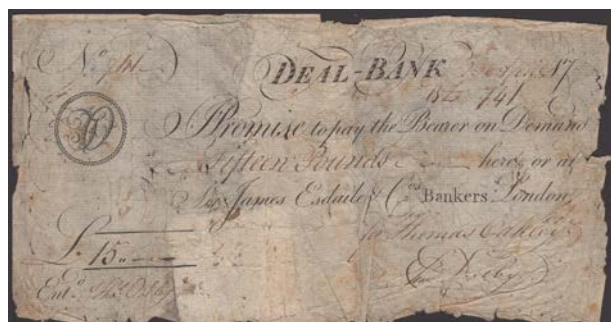 No. 741
DEAL-BANK
741
I Promise to pay the Bearer on Demand
Fifteen Pounds here, or at
Sir James Esdaile & Co. Bankers London
for Thomas Oakley
£ 15
Entd. Thos.